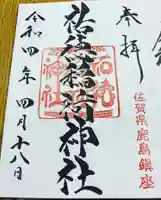 奉拝
佐賀県鹿島鎮座
祐徳稲荷神社
令和四年四月十八日